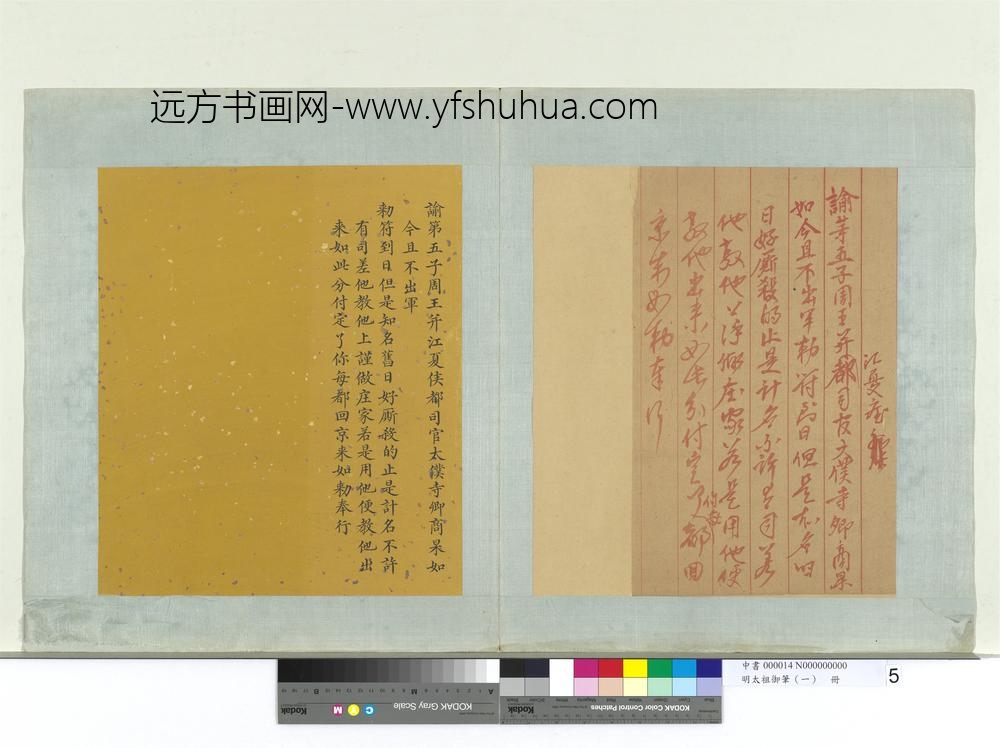 远方书画网-www.yfshuhua.com
江夏侯
諭第五子周王并都司官太僕寺卿商杲
如今且不出軍勅符到日但是知名旧
日好廝殺的止是計名不許有司差
他教他上謹做庄家若是用他便
教他出来如此分付定了你每都回
京来如勅奉行
諭第五子周王并江夏侯都司官太僕寺卿商杲如
今且不出軍
勅符到日但是知名舊日好廝殺的止是計名不許
有司差他教他上謹做庄家若是用他便教他出
来如此分付定了你每都回京来如勅奉行
中書 000014 N000000000
明太祖御筆（一） 冊
5
Kodak
KODAK Gray Scale
C Y M
KODAK Color Control Patches
Kodak